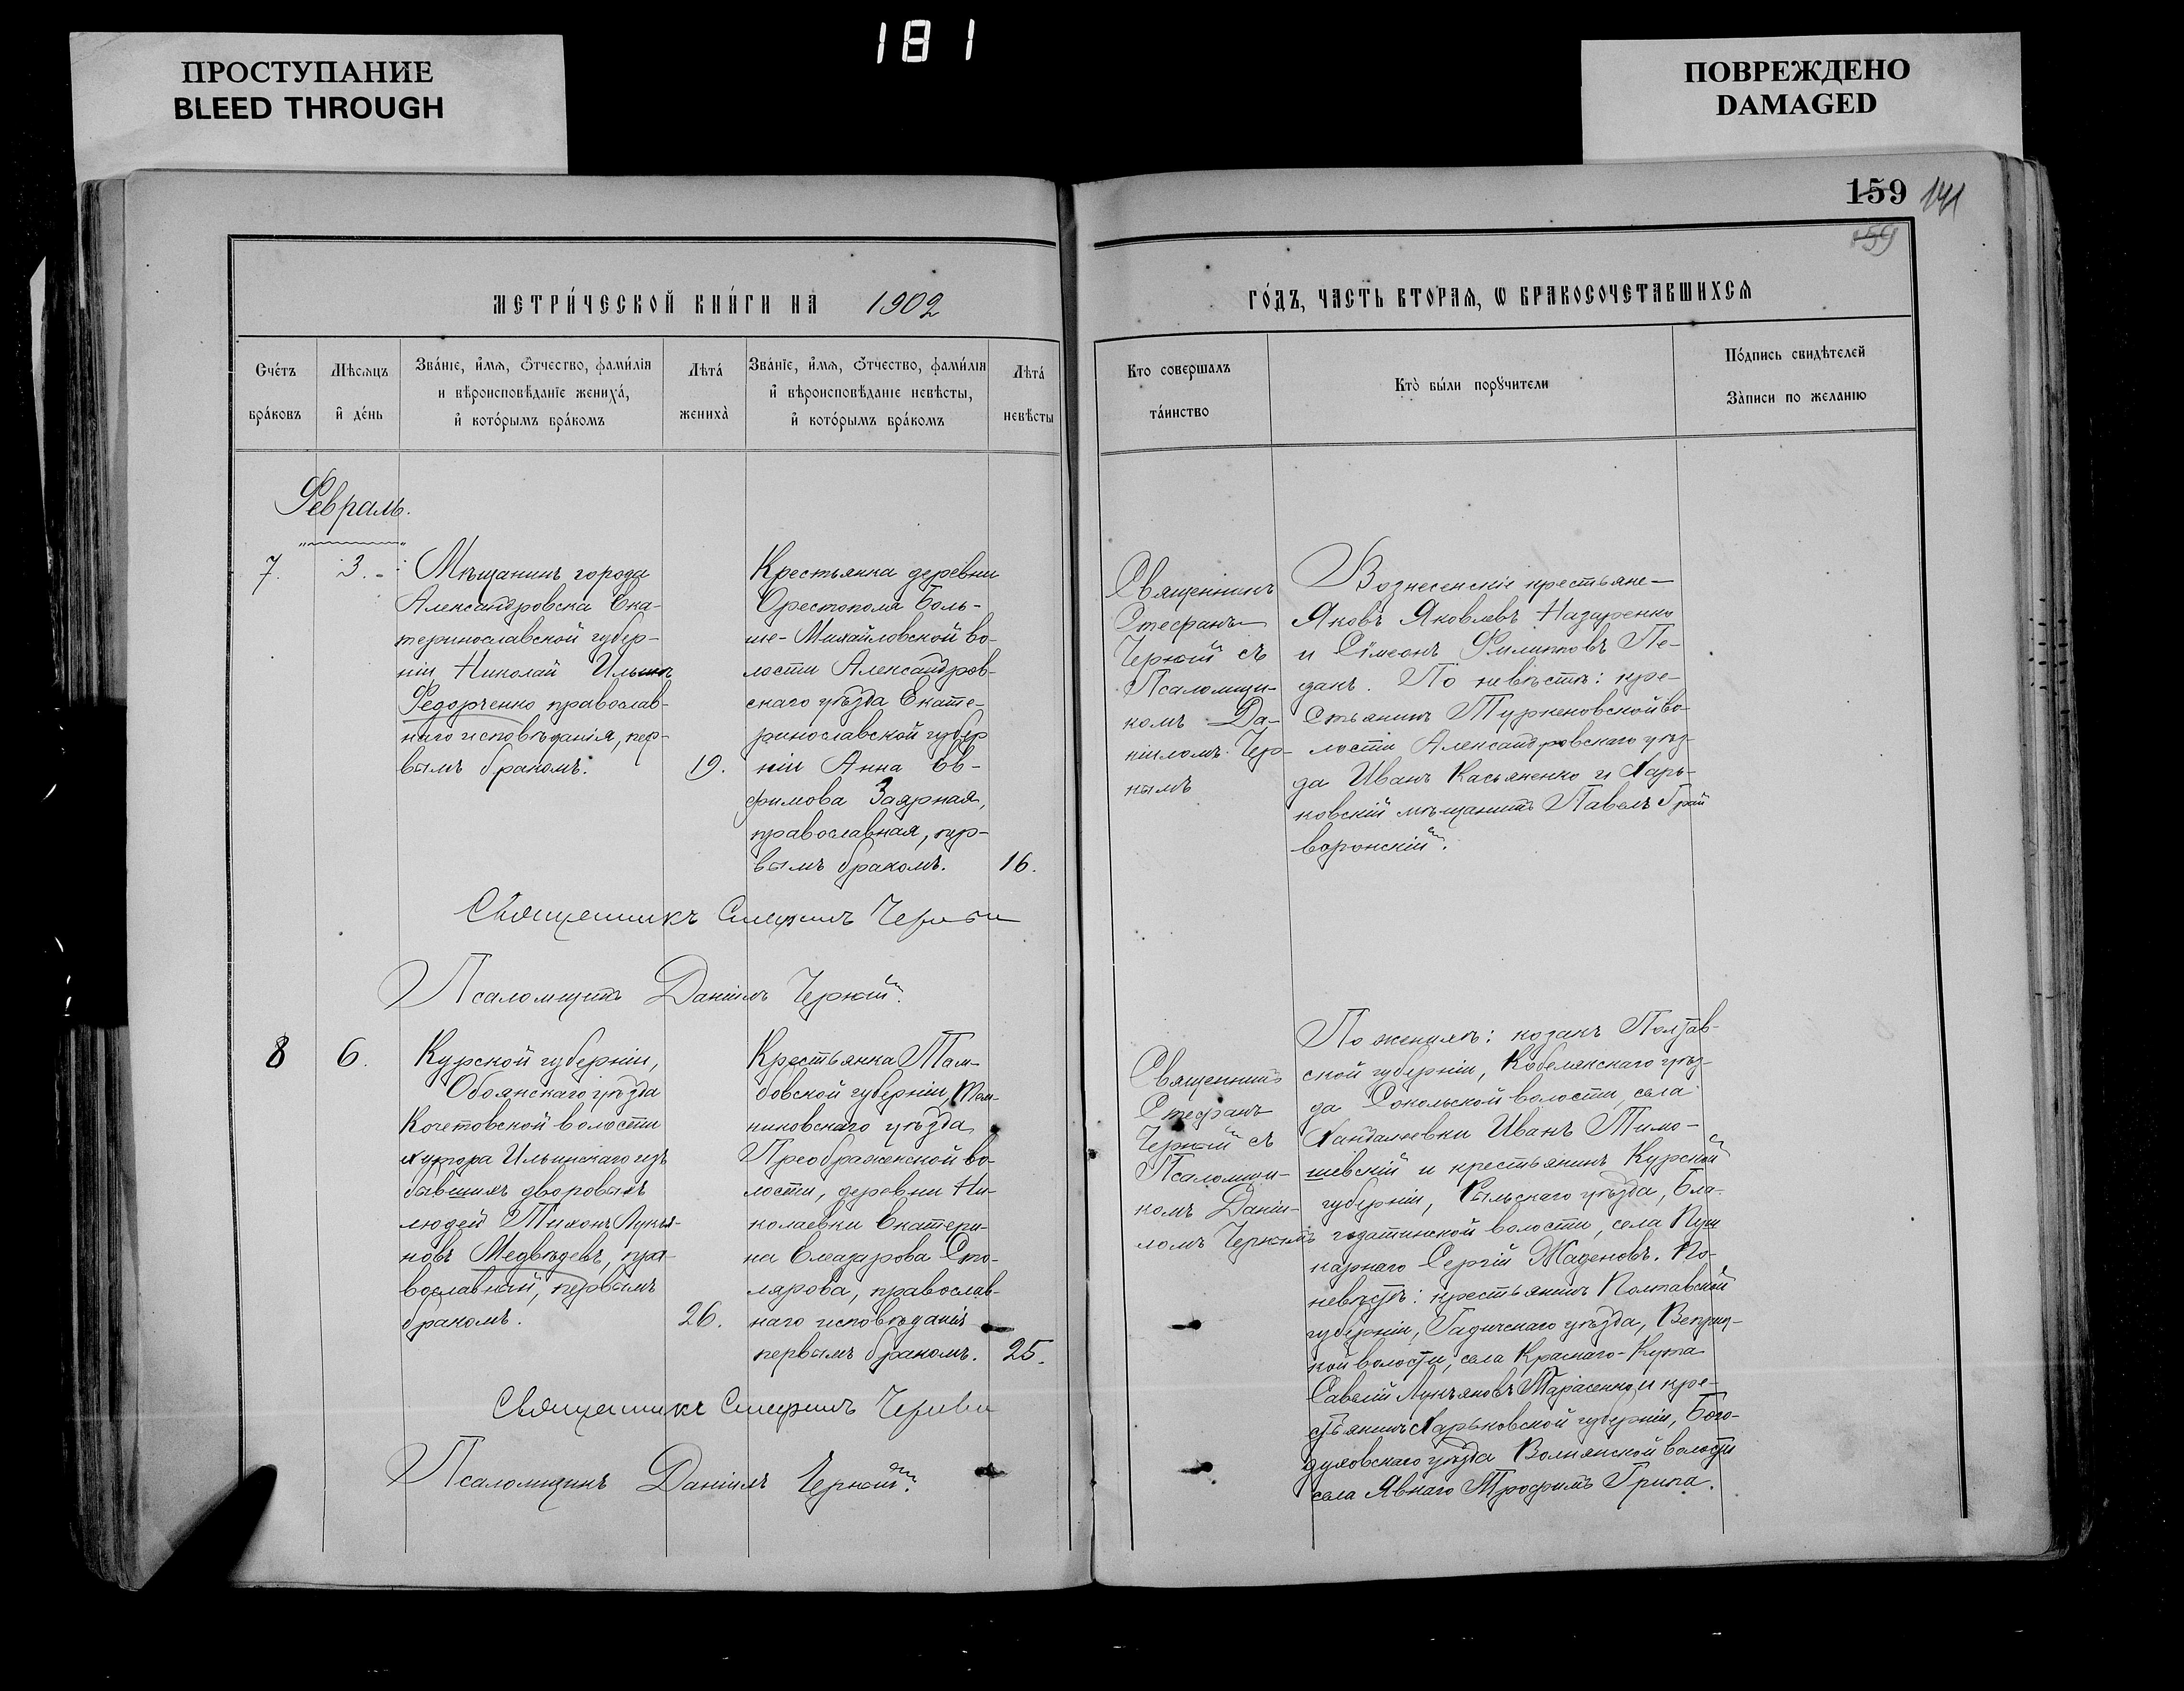 181
ПРОСТУПАНИЕ
BLEED THROUGH
ПОВРЕЖДЕНО
DAMAGED
159 141
159
МЕТРИ́ЧЕСКОЙ КНИ́ГИ НА 1902
ГО́ДЪ, ЧАСТЬ ВТОРАѦ, Ѡ БРАКОСОЧЕТАВШИХСѦ
Сче́тъ
бра́ковъ
Мѣсѧцъ
и́ де́нь
Зва́нїе, и́мѧ, ѻ́тчество, фами́лїя
и вѣроисповѣ́данїе жениха́,
и́ кото́рымъ бра́комъ
Лѣта́
жениха̀
Зва́нїе, и́мѧ, ѻ́тчество, фами́лїя
и́ вѣроисповѣ́данїе невѣ́сты,
и́ кото́рымъ бра́комъ
Лѣта́
невѣ́сты
Кто совершалъ
та́инство
Кто̀ бы́ли порꙋчители
По́дпись свидѣ́телей
За̀писи по желанїю
Февраль.
7. 3.
Мѣщанинъ города
Александровска Ека-
теринославской губер-
ніи Николай Ильинъ
Федорченко православ-
наго исповѣданія, пер-
вымъ бракомъ. 19.
Крестьянка деревни
Орестополя Боль-
ше-Михайловской во-
лости Александров-
скаго уѣзда Екате-
ринославской губер
ніи Анна Ев-
фимова Заярная,
православная, пер-
вымъ бракомъ. 16.
Священникъ
Стефанъ
Черный съ
Псаломщи-
комъ Да-
ніиломъ Чер-
нымъ
Вознесенскіе крестьяне-
Яковъ Яковлевъ Назаренко
и Сімеонъ Филипповъ Пе-
данъ. По невѣстѣ: кре-
стьянинъ Туркеновской во-
лости Александровскаго уѣз-
да Иванъ Касьяненко и Харь-
ковскій мѣщанинъ Павелъ Грай
воронскій.
Священникъ Стефанъ Черный
Псаломщикъ Даніилъ Черный.
8 6.
Курской губерніи,
Обоянскаго уѣзда
Кочетовской волости
хутора Ильинскаго изъ
бывшихъ дворовыхъ
людей Тихонъ Лукья-
новъ Медвѣдевъ, пра-
вославный, первымъ
бракомъ. 26.
Крестьянка Там-
бовской губерніи, Тем-
никовскаго уѣзда
Преображенской во-
лости, деревни Ни-
колаевки Екатери-
на Елеазарова Сто-
лярова, православ-
наго исповѣданія
первымъ бракомъ. 25.
Священникъ
Стефанъ
Черный съ
Псаломщи-
комъ Даніи-
ломъ Чернымъ
По женихѣ: козакъ Полтав-
ской губерніи, Кобелякскаго уѣз-
да Сокольской волости, села
Хандалеевки Иванъ Тимо-
шевскій и крестьянинъ Курской
губерніи, Рыльскаго уѣзда, Бла-
годатинской волости, села Пуш
карнаго Сергій Маценовъ. По-
невѣстѣ: крестьянинъ Полтавской
губерніи, Гадичскаго уѣзда, Веприц-
кой волости, села Краснаго-Кута
Савелій Лукьяновъ Тарасенко и кре-
стьянинъ Харьковской губерніи, Бого-
духовскаго уѣзда Волнянской волости
села Явнаго Трофимъ Грипа.
Священникъ Стефанъ Черный
Псаломщикъ Даніилъ Черный.